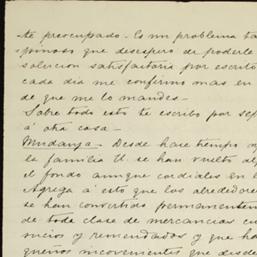 te preocupado. Es mi problema ta
spinoso que desespero de poderle
solucion satisfactoria por escrito
cada dia me confirmo mas en
de que me lo mandes.
Sobre todo esto te escribo por sep
á otra casa.
Mudanza. Desde hace tiempo
la familia U. se han vuelto al
el fondo aunque cordiales en l
Agrega á esto que los alrededores
se han convertido permanentemen
de toda clase de mercancias cu
nicios y remendados y que ha
queños inconvenientes que desde